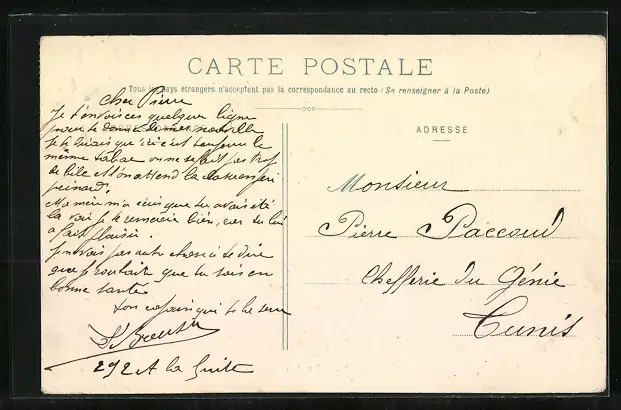 CARTE POSTALE
Tous les pays étrangers n'acceptent pas la correspondance au recto (Se renseigner à la Poste)
cher Pierre
Je t'envois ces quelque ligne
pour te donné de mes nouvelle
Je te dirais que ici c'est toujour le
même tabac on ne se fait pas trop
de bile et on attend la
peinard.
Ma mère m'a écris que tu avais été
la voir je te remercie bien, car tu lui
a fait plaisir.
Je ne vois pas autre chose à te dire
que je souhait que tu sois en
bonne santé
ton copain qui te la serre
292 A la Suite
ADRESSE
Monsieur
Pierre Paccoud
Chefferie du Génie
Tunis